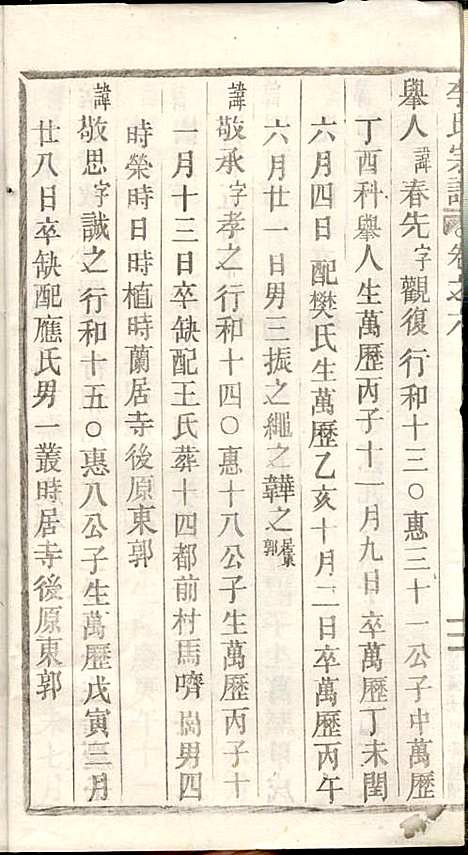 李氏宗譜 卷之八
舉人諱春先字觀復行和十三〇惠三十一公子中萬歷
丁酉科舉人生萬歷丙子十一月九日卒萬歷丁未閏
六月四日配樊氏生萬歷乙亥十月二日卒萬歷丙午
六月廿一日男三振之繩之韡之居東郭
諱敬承字孝之行和十四〇惠十八公子生萬歷丙子十
一月十三日卒缺配王氏葬十四都前村馬嘶
男四
時榮時日時植時蘭居寺後原東郭
諱敬思字誠之行和十五〇惠八公子生萬歷戊寅三月
廿八日卒缺配應氏男一叢時居寺後原東郭